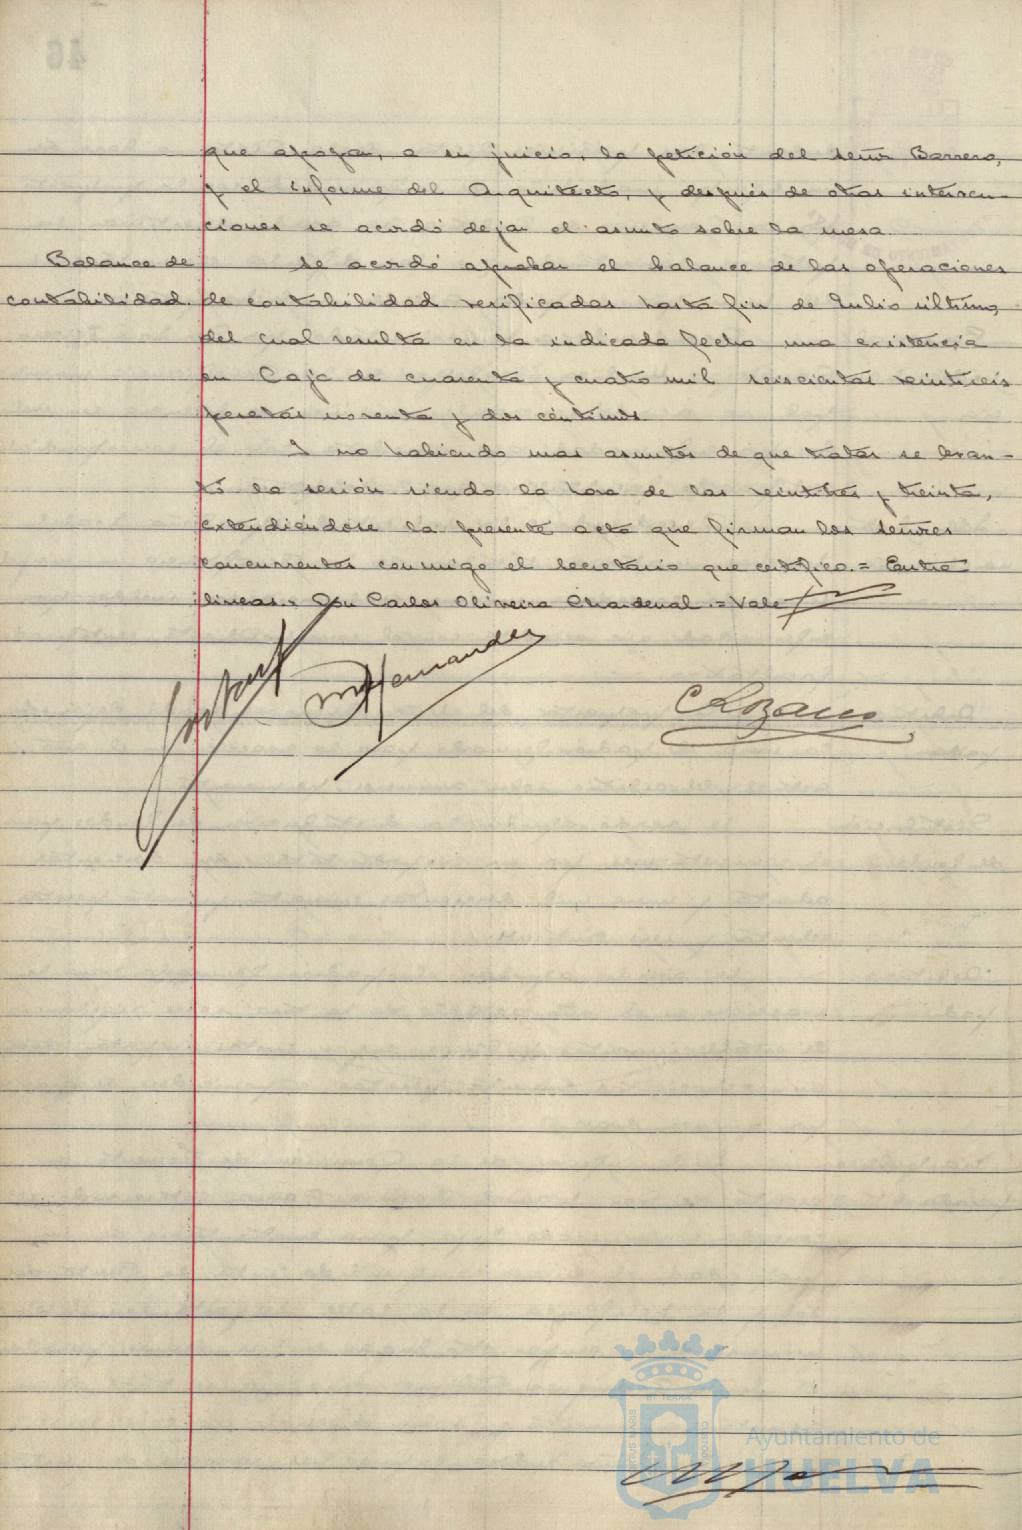 que apoyan, a su juicio, la petición del señor Barrero,
y el informe del Arquitecto, y después de otras interven-
ciones se acordó dejar el asunto sobre la mesa.
Balance de
contabilidad.
Se acordó aprobar el balance de las operaciones
de contabilidad verificadas hasta fin de Julio último,
del cual resulta en la indicada fecha una existencia
en Caja de cuarenta y cuatro mil seiscientas veintiseis
pesetas noventa y dos céntimos.
Y no habiendo mas asuntos de que tratar se levan-
tó la sesión siendo la hora de las veintitres y treinta,
extendiéndose la presente acta que firman los señores
concurrentes conmigo el Secretario que certifico.= Entre
lineas.= Don Carlos Oliveira Chardenal.=Vale
MHernandez
CLozano
Ayuntamiento de
HUELVA